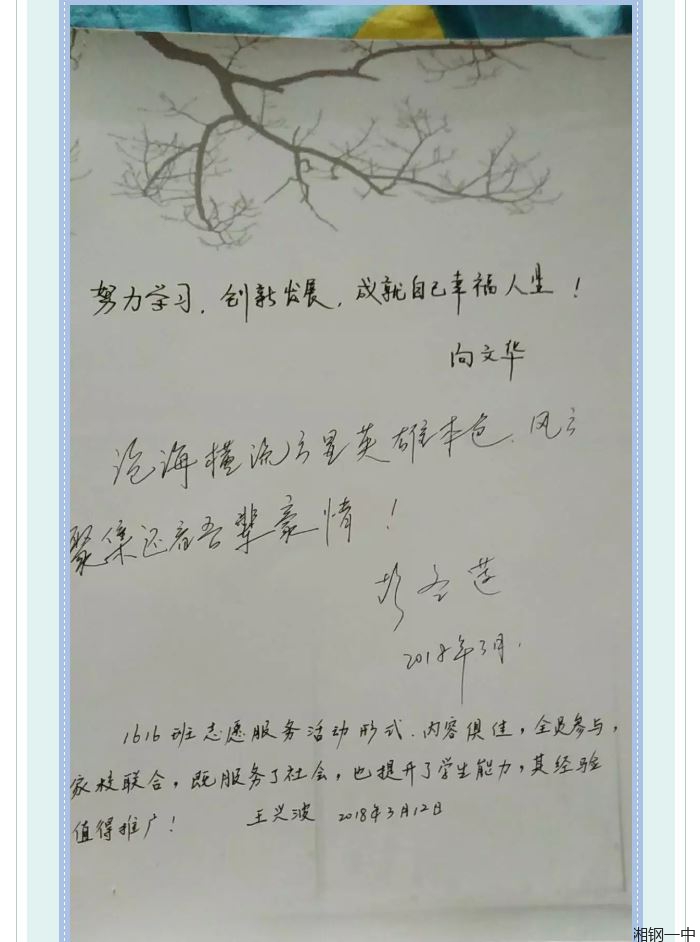 努力学习，创新发展，成就自己幸福人生！
向文华
沧海横流方显英雄本色，风云
聚集还看吾辈豪情！
2018年3月.
1616班志愿服务活动形式、内容俱佳，全员参与，
家校联合，既服务了社会，也提升了学生能力，其经验
值得推广！ 王兴波 2018年3月12日
湘钢一中